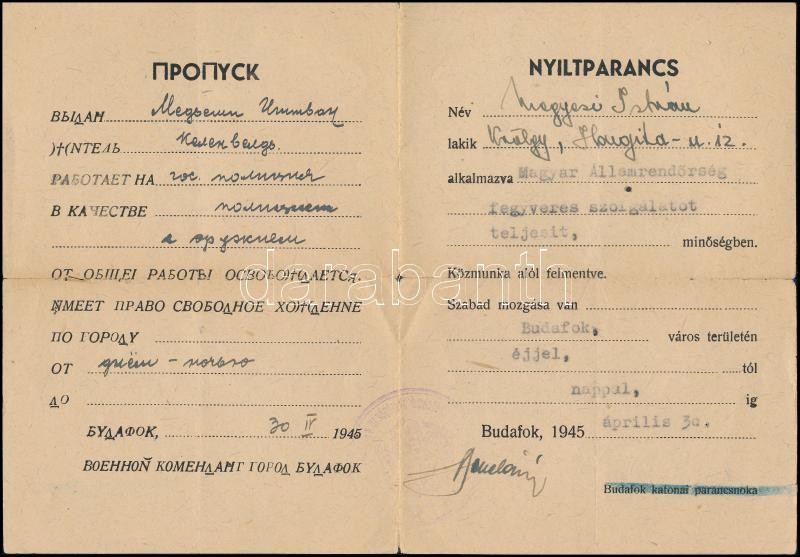 ПРОПУСК
ВЫДАН Медьеши Иштван
)+(ИТЕЛЬ Келенвелдь
РАБОТАЕТ НА гос. полиция
В КАЧЕСТВЕ полициет
с оружием
ОТ ОБЩЕІ РАБОТЬІ ОСВОБО)+(ДАЕТСЯ.
ИМЕЕТ ПРАВО СВОБОДНОЕ ХО)+(ДЕНИЕ
ПО ГОРОДУ
ОТ днём - ночью
ДО
БУДАФОК, 30 IV 1945
ВОЕННОЙ КОМЕНДАНТ ГОРОД БУДАФОК
NYILTPARANCS
Név Megyesi István
lakik Hargita-u. 12.
alkalmazva Magyar Államrendőrség
fegyveres szolgálatot
teljesit, minőségben.
Közmunka alól felmentve.
Szabad mozgása van
Budafok, város területén
éjjel, tól
nappal, ig
Budafok, 1945 április 30.
Budafok katonai parancsnoka
darabanth